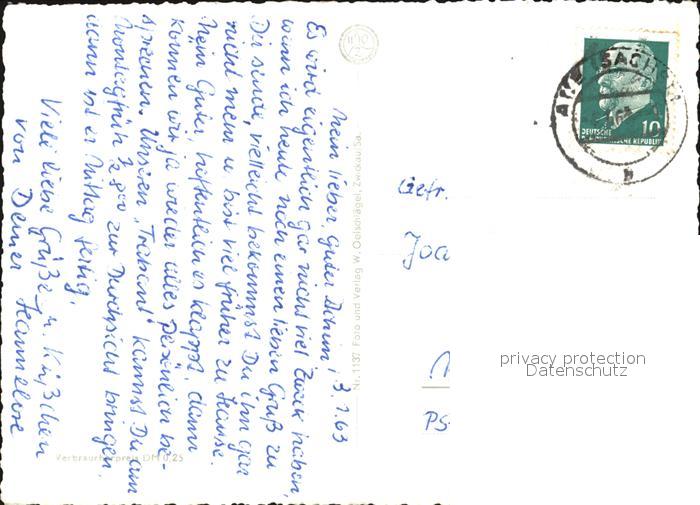 Mein lieber, guter Achim! 3.7.63
Es wird eigentlich gar nicht viel Zweck haben,
wenn ich heute noch einen lieben Gruß zu
Dir sende, vielleicht bekommst Du ihn gar
nicht mehr u. bist viel früher zu Hause.
Mein Guter, hoffentlich es klappt, dann
können wir ja wieder alles persönlich be-
sprechen. Unseren "Trabant" kannst Du am
Montagfrüh 7 zur Durchsicht bringen,
dann ist er Mittag fertig.
Viele liebe Grüße u. Küßchen
von Deiner Hannelore
Verbraucherpreis DM 0,25
Nr. 1137 Foto und Verlag W. Oelschlägel, Zwickau Sa.
AUE (SACHSEN)
b
DEUTSCHE
DEMOKRATISCHE REPUBLIK
10
Gefr.
Joa
PS-
privacy protection
Datenschutz